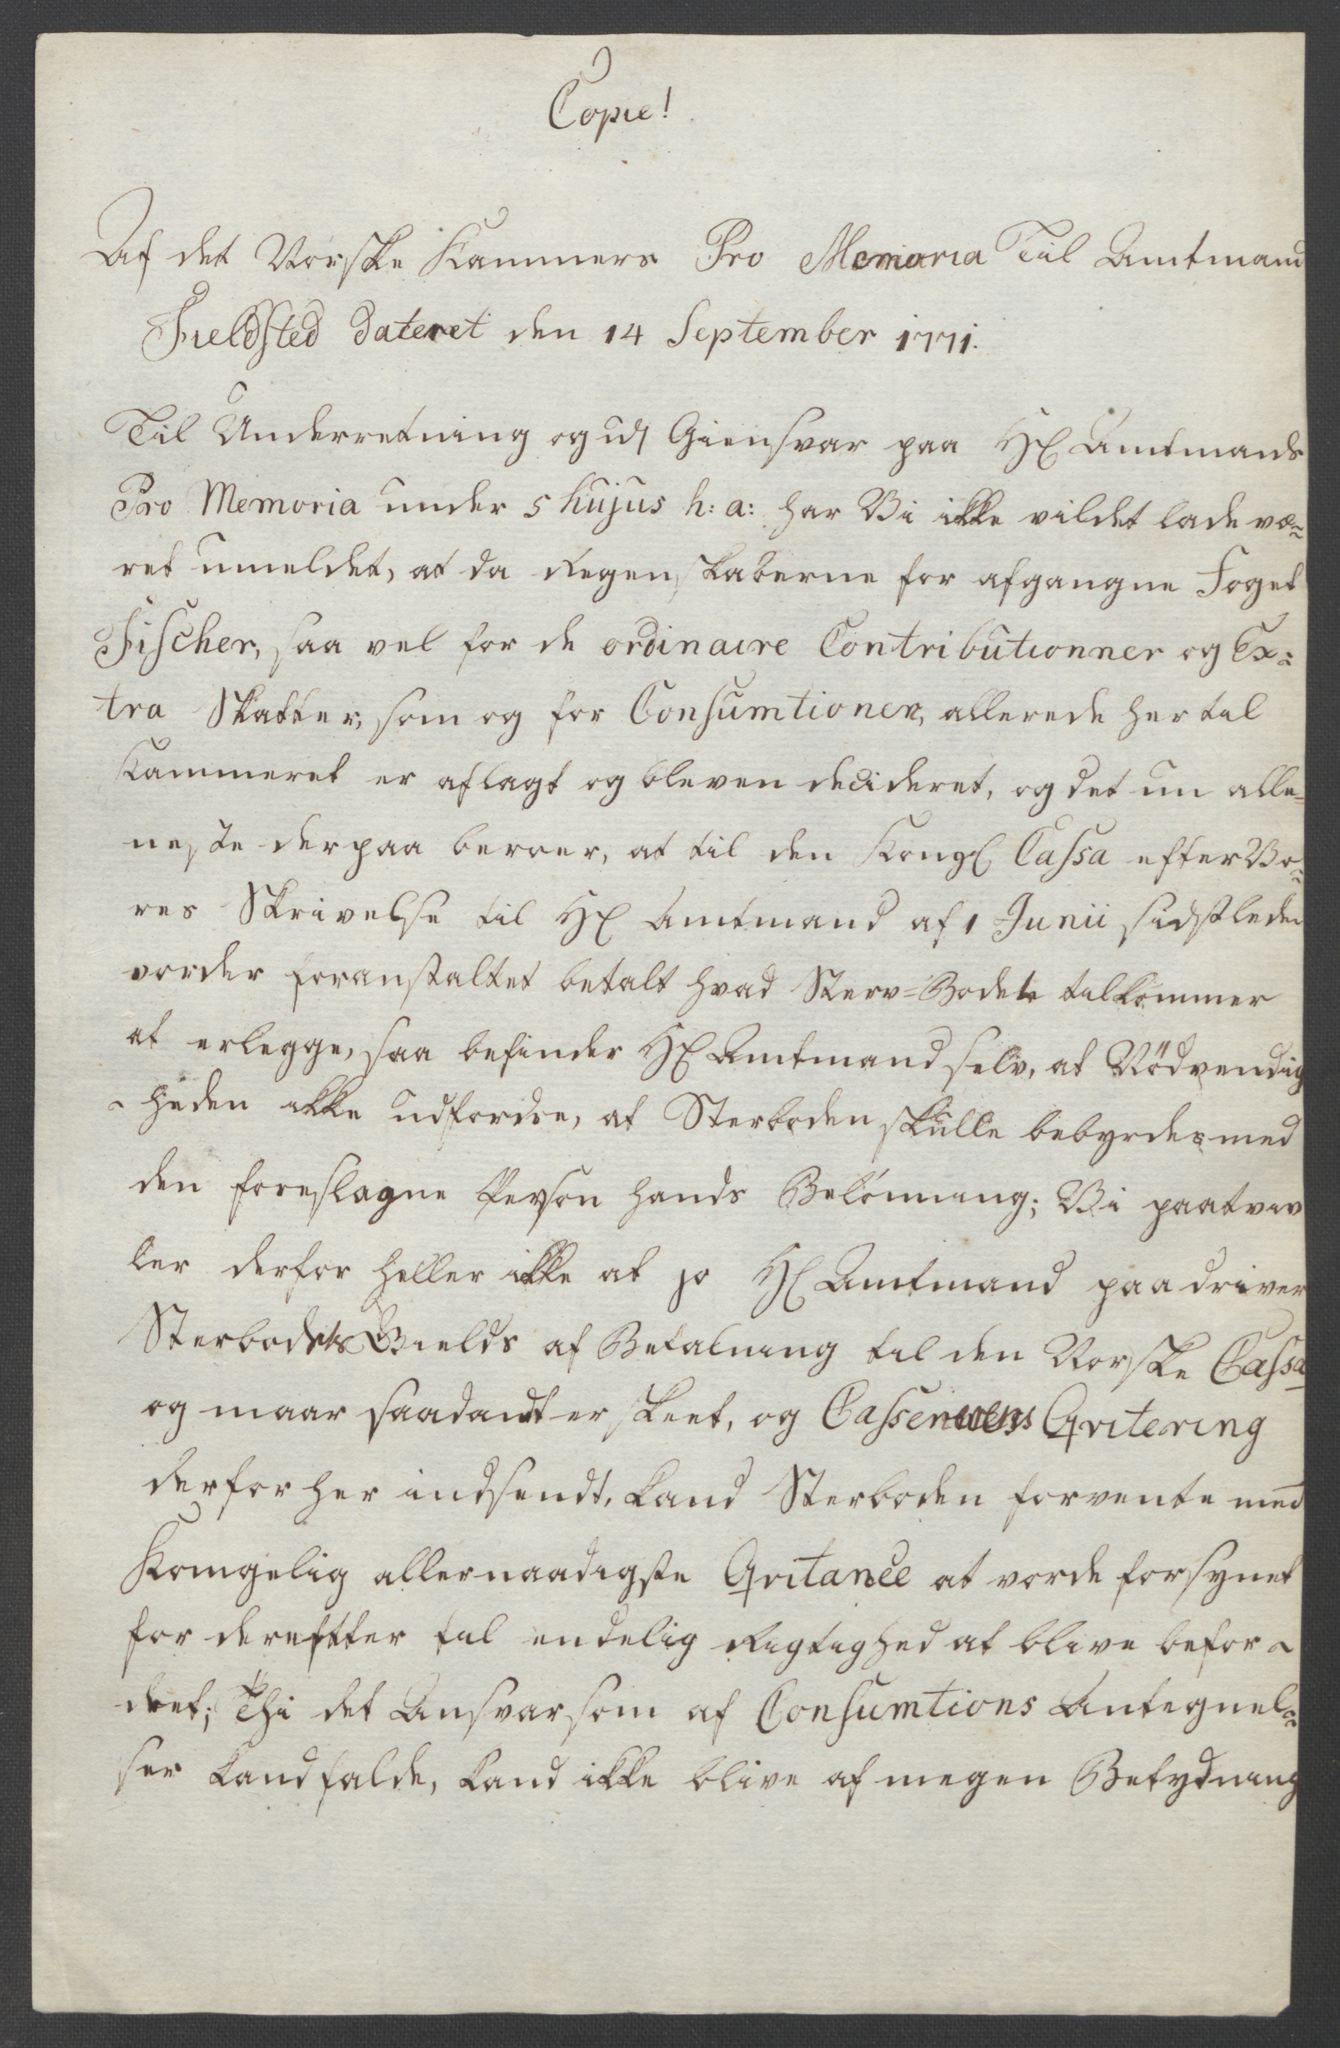 Copie!
Af det Norske Kammers Pro Memoria Til Amtmand
Fieldsted dateret den 14 September 1771.
Til Underretning og udj Giensvar paa Hr Amtmands
Pro Memoria under 5 hujus h: a: har Vi ikke vildet lade væ=
ret umeldet, at da Regenskaberne for afgangne Foget
Fischer, saa vel for de ordinaire Contributionner og Ex=
tra Skatter, som og for Consumtionen, allerede her til
Kammeret er aflagt og bleven decideret, og det nu alle=
neste derpaa beroer, at til den Kongl Cassa efter Vo=
res Skrivelse til Hr Amtmand af 1 Junii sidstleden
vorder foranstaltet betalt hvad Sterv=Bodet tilkommer
at erlegge, saa befinder Hr Amtmand selv, at Nödvendig
=heden ikke udfordre, at Sterboden skulle bebyrdes med
den foreslagne Person hands Belönning; Vi paatviv
ler derfor heller ikke at jo Hr Amtmand paadriver
Sterbodets Gields af Betalning til den Norske Cassa
og naar saadandt er skeet, og Casserens Qvitering
derfor her indsendt, kand Sterboden forvente med
Kongelig allernaadigste Qvitance at vorde forsynet
for derefter til endelig Rigtighed at blive befor=
dret; Thi det Ansvar som af Consumtions Antegnel=
ser kand falde, kand ikke blive af megen Betydning